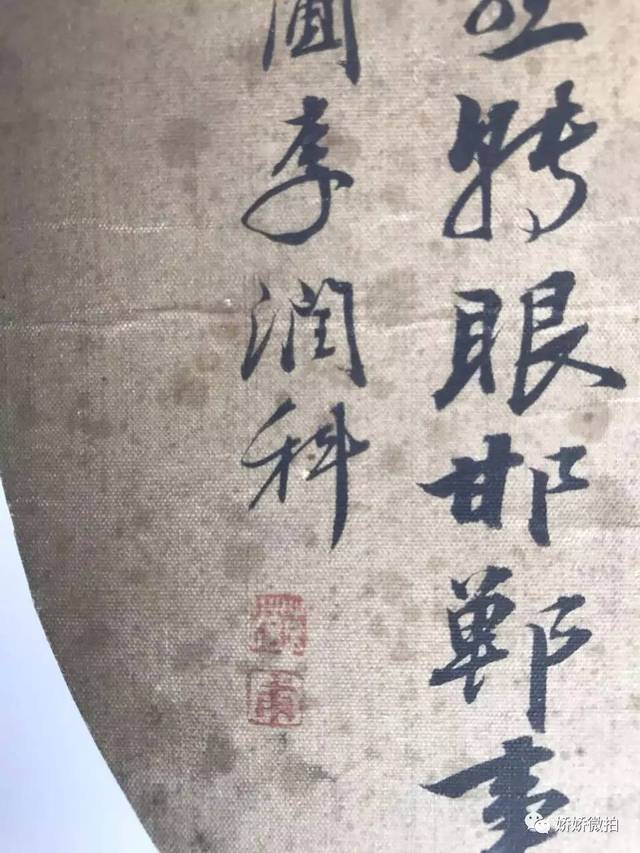 轉眼邯鄲事
李潤科
娇娇微拍